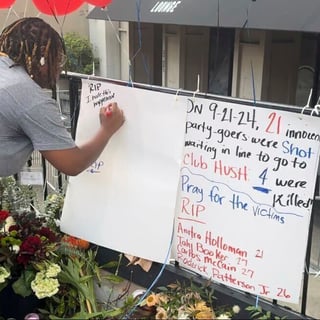 LOUNGE
RIP
I hate this
happened
On 9-21-24, 21 innocen
party-goers were Shot
waiting in line to go to
Club Hush! 4 were
Killed"
Pray for the victims
RIP
Anitra Holloman 21
Taj Booker 27
Carlos McCain 27
Roderick Patterson Jr. 26